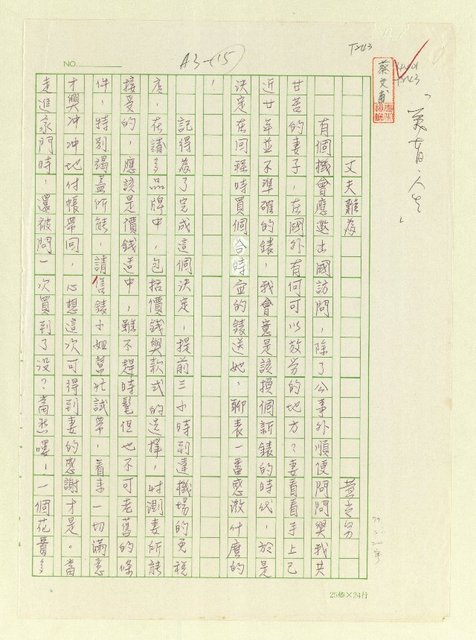 T243
A3-(15)
NO.
蔡文甫
「美首人生」
丈夫難為
有個機會應邀出國訪問,除了公事外順便問問與我共
甘苦的妻子,在國外有何可以效勞的地方?妻看看手上已
近廿年並不準確的錶,我會意是該換個新錶的時代,於是
決定在回程時買個合時宜的錶送她,聊表一番感激什麼的
!
記得為了完成這個決定,提前三小時到達機場的免稅
店,在議多品牌中,包括價錢與款式的選擇,忖測妻所能
接受的,應該是價錢適中,雖不趕時髦但也不可老舊的條
件,特別竭盡所能,請售錶小姐幫忙試帶,看來一切滿意
才興冲冲地付帳帶回,心想這次可得到妻的感謝才是。當
走進家門時,還被問一次買到了沒?當然嘍!一個花費了
25格×24行